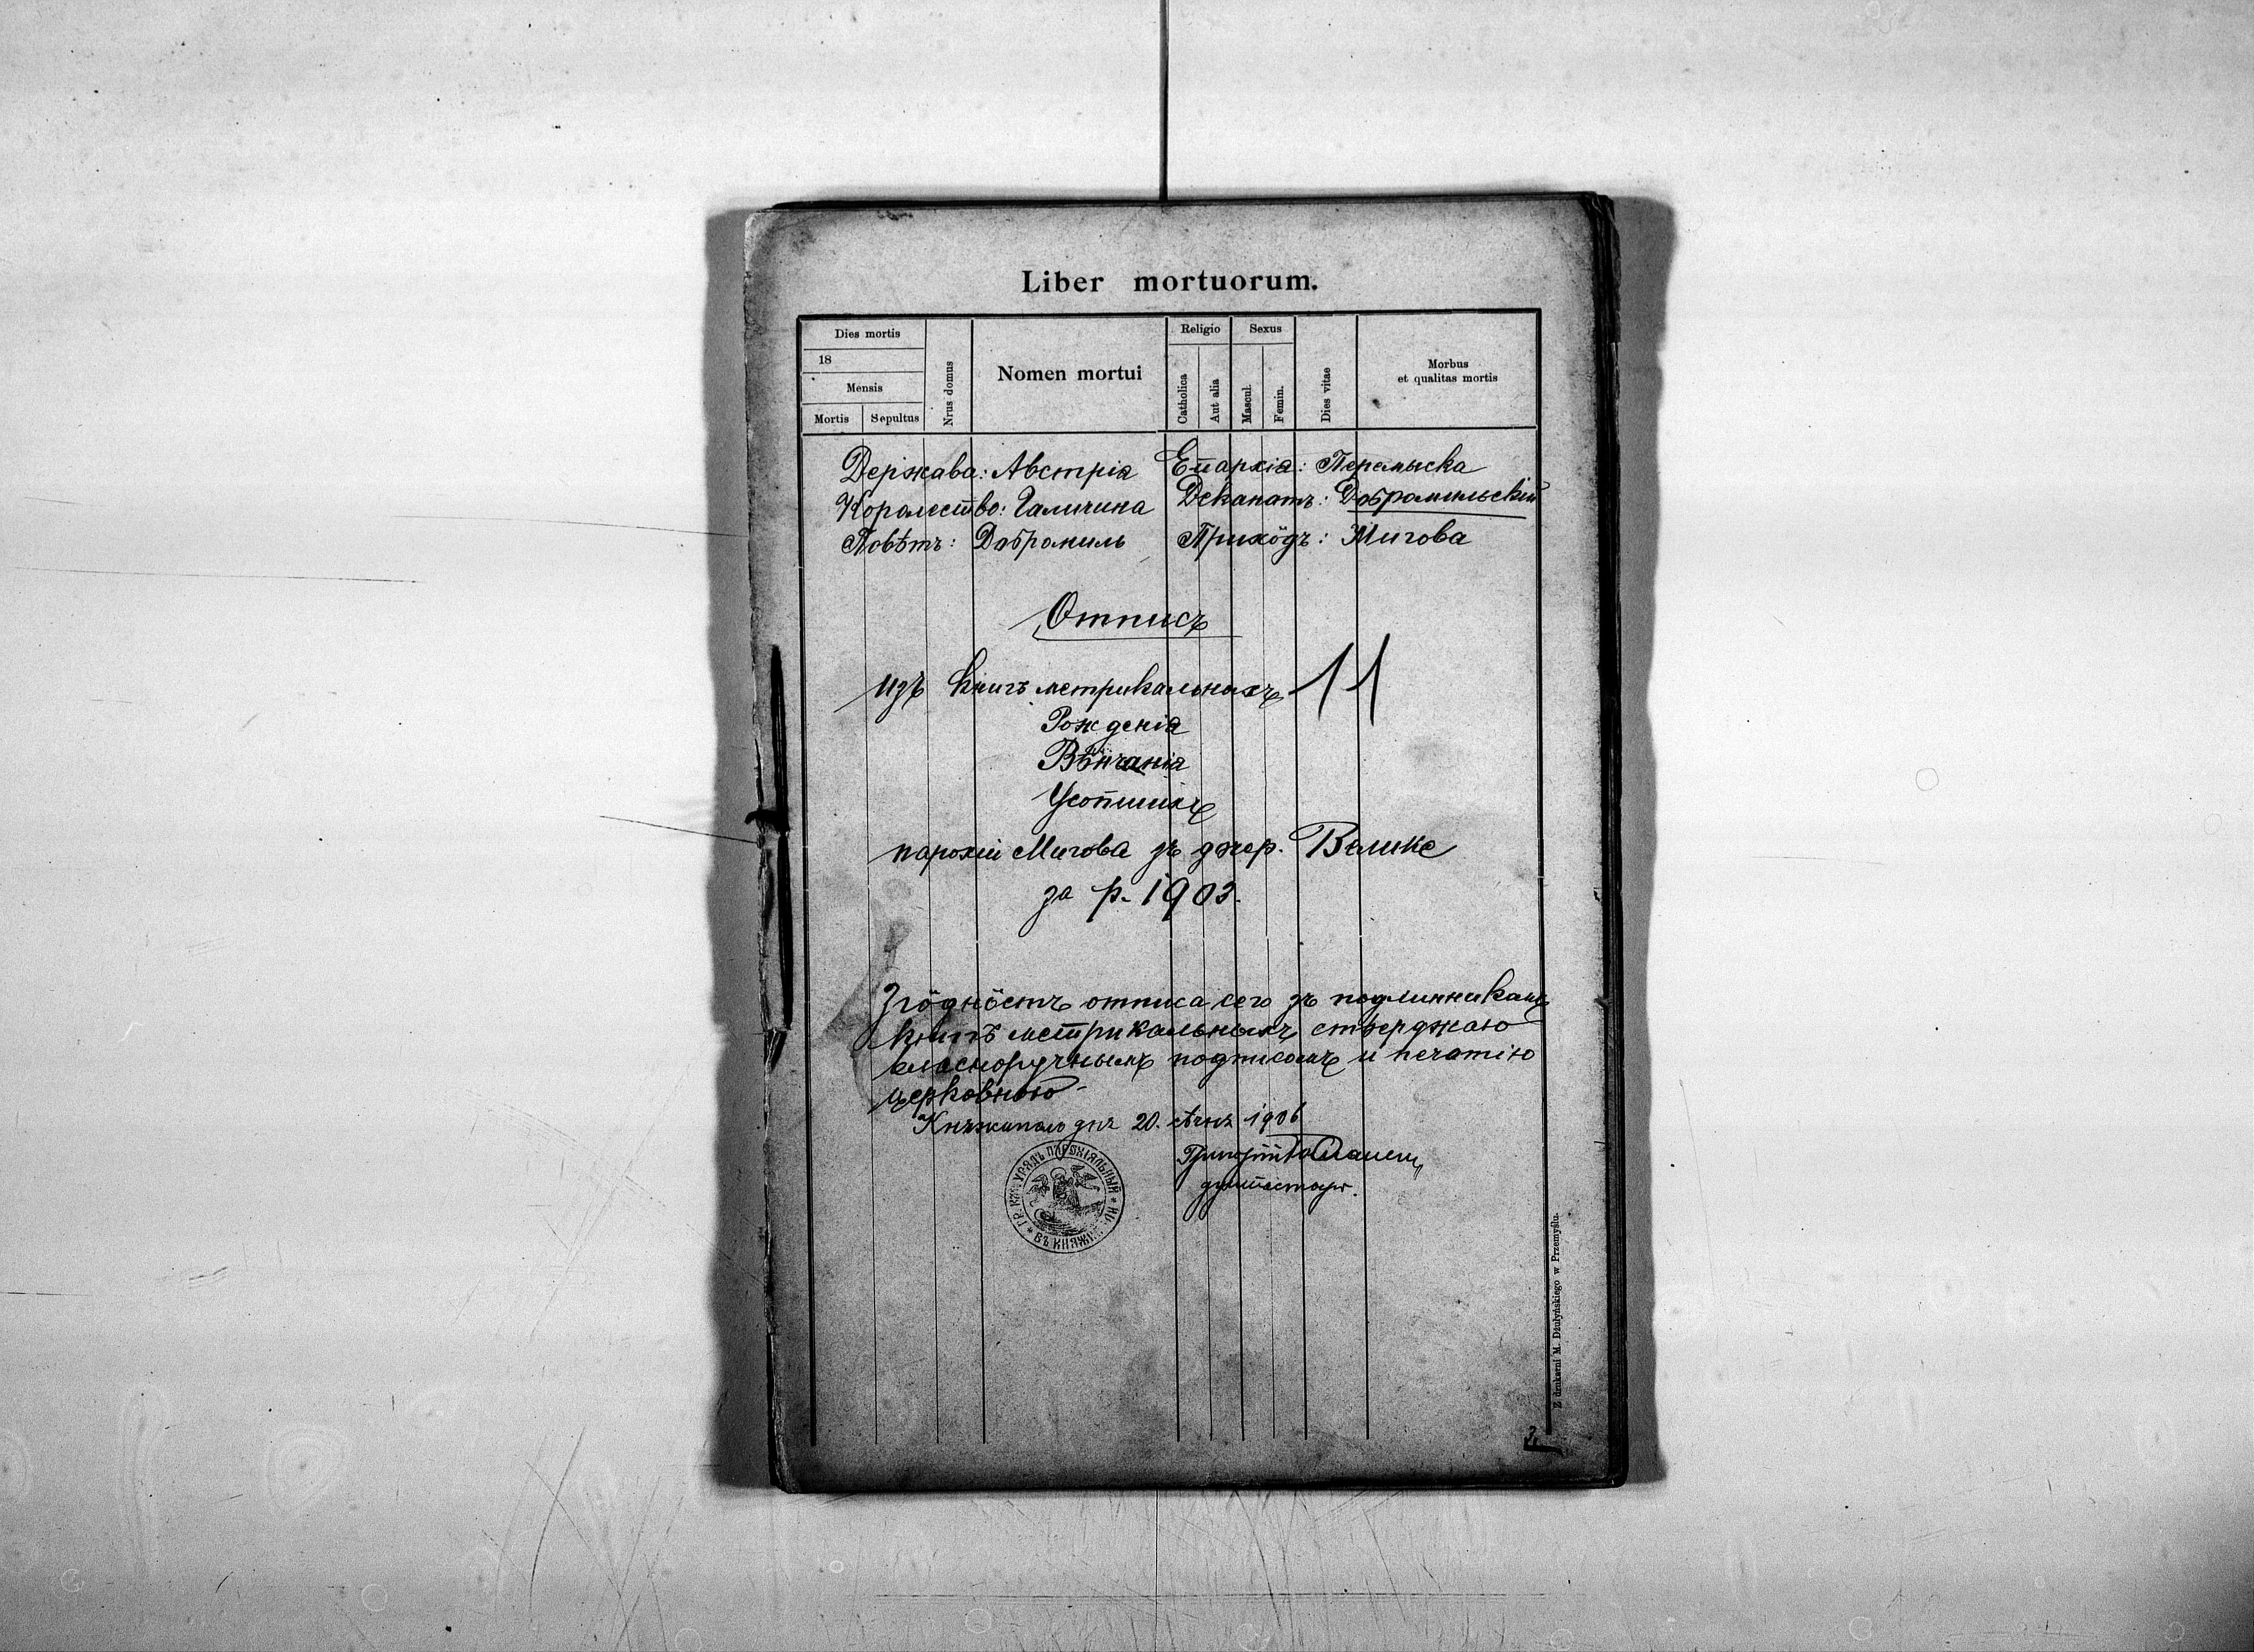 Liber mortuorum.
Dies mortis
18
Mensis
Mortis Sepultus
Nrus domus
Nomen mortui
Religio
Catholica
Aut alia
Sexus
Mascul.
Femin.
Dies vitae
Morbus
et qualitas mortis
Держава: Австрія Епархіа: Перемыска
Королество: Галичина Деканатъ: Добромильскій
Повѣтъ: Добромиль Приходъ: Мигова
Отписъ
изъ книгъ метрикальныхъ 11
Рожденія
Вѣнчанія
Усопшихъ
парохіи Мигова зъ дочер. Велике
за р. 1903.
Згöднöсть отписа сего зъ подлинникомъ
книгъ метрикальныхъ стверджаю
власноручнымъ подписомъ и печатію
церковною
дня 20. сѣчня 1906
ГР. КАТ. УРЯДЪ ПАРОХІЯЛЬНЫЙ
ВЪ КНЯЖ
Z drukarni M. Dżułyńskiego w Przemyślu.